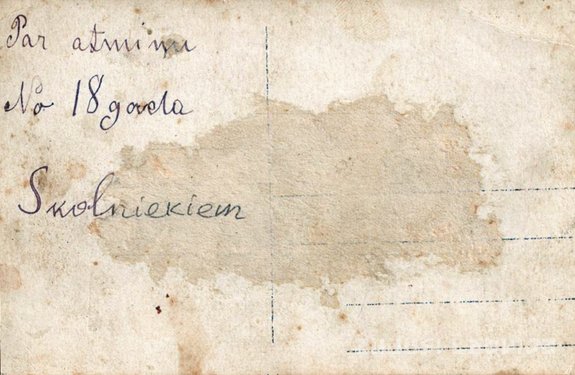 Par atminu
No 18 gada
Skolniekiem